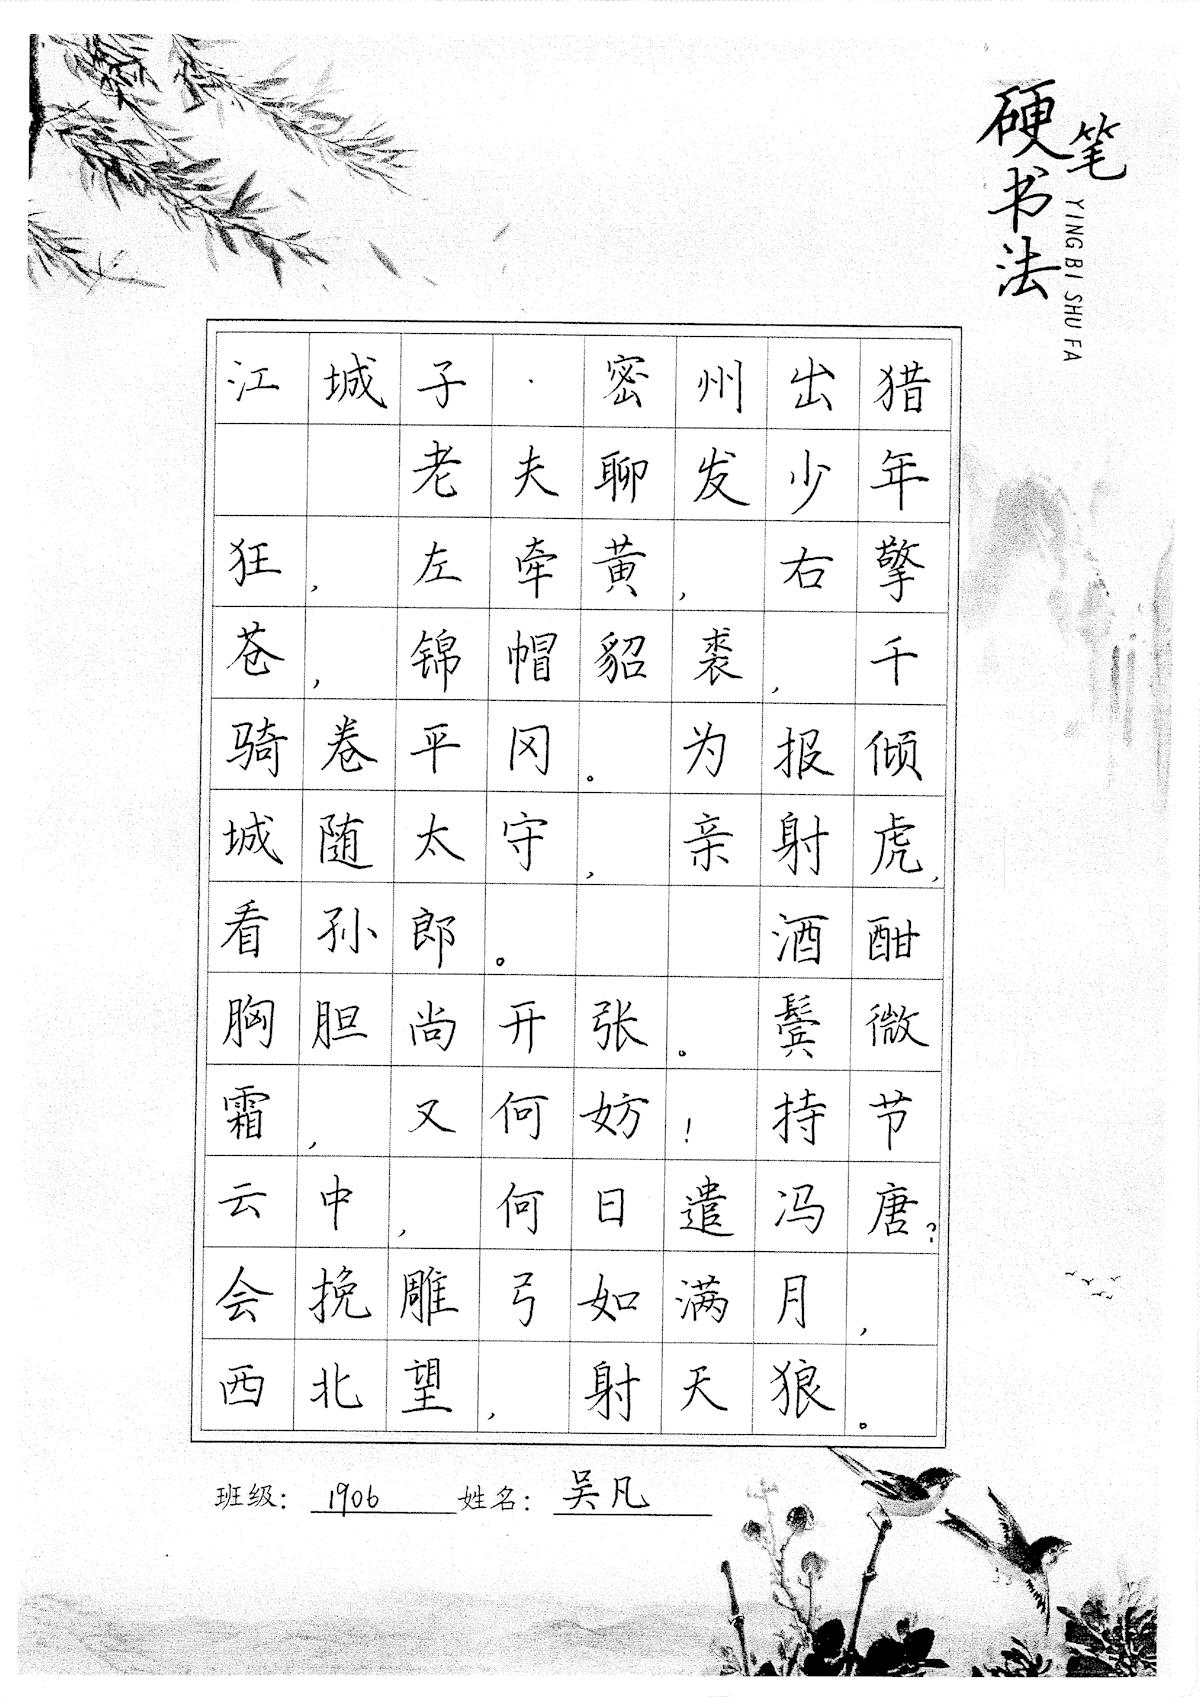 硬笔
书法
YING BI SHU FA
江城子·密州出猎
老夫聊发少年
狂，左牵黄，右擎
苍，锦帽貂裘，千
骑卷平冈。为报倾
城随太守，亲射虎，
看孙郎。酒酣
胸胆尚开张。鬓微
霜，又何妨！持节
云中，何日遣冯唐？
会挽雕弓如满月，
西北望，射天狼。
班级：1906 姓名：吴凡